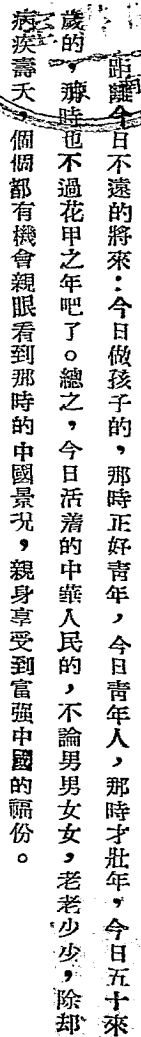 距離今日不遠的將來：今日做孩子的，那時正好青年，今日青年人，那時才壯年，今日五十來
歲的，那時也不過花甲之年吧了。總之，今日活着的中華人民的，不論男男女女，老老少少，除却
病疾壽夭，個個都有機會親眼看到那時的中國景況，親身享受到富强中國的福份。